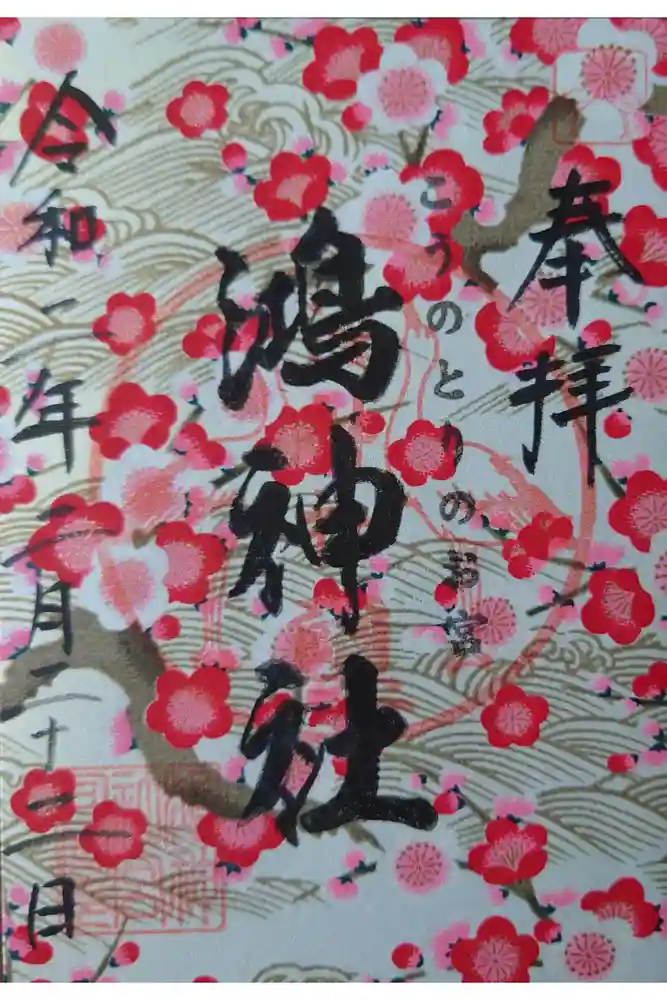 奉拝
こうのとりのお宮
鴻神社
令和二年二月二十二日